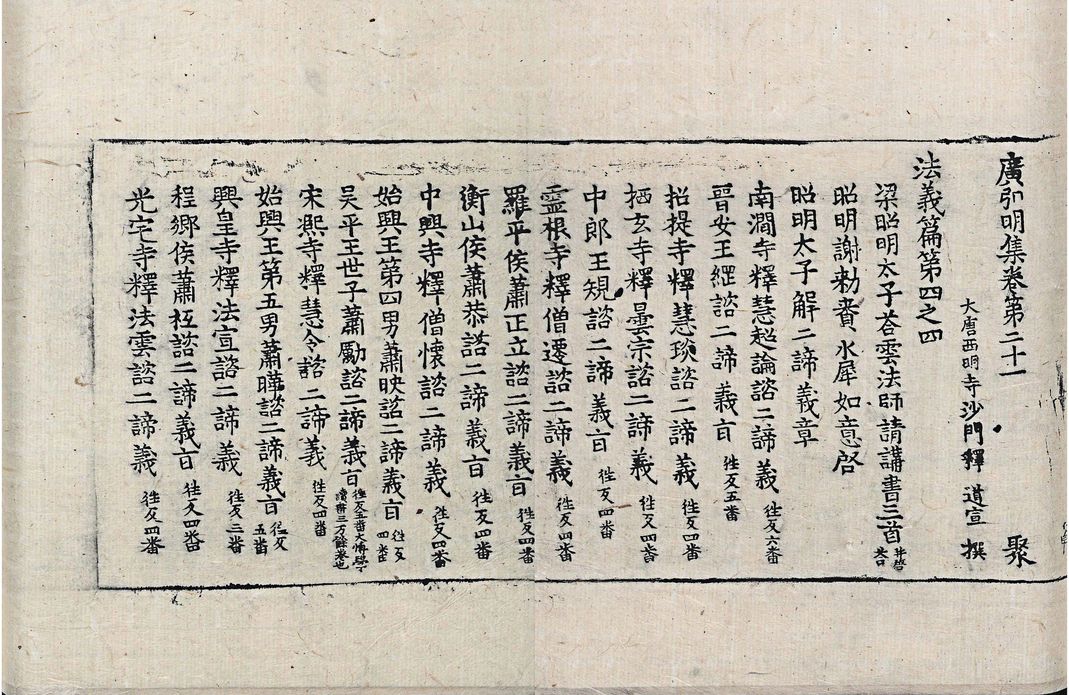 廣弘明集卷第二十一 聚
大唐西明寺沙門釋 道宣 撰
法義篇第四之四
梁昭明太子荅雲法師請講書三首 并啓荅
昭明謝勑賚水犀如意啓
昭明太子解二諦義章
南澗寺釋慧超論諮二諦義 往反六番
晉安王綱諮二諦義旨 往反五番
招提寺釋慧琰諮二諦義 往反四番
栖玄寺釋曇宗諮二諦義 往反四番
中郎王規諮二諦義旨 往反四番
靈根寺釋僧遷諮二諦義 往反四番
羅平侯蕭正立諮二諦義旨 往反四番
衡山侯蕭恭諮二諦義旨 往反四番
中興寺釋僧懷諮二諦義 往反四番
始興王第四男蕭映諮二諦義旨 往反四番
吳平王世子蕭勵諮二諦義旨 往反五番
宋熙寺釋慧令諮二諦義 往反四番
始興王第五男蕭曄諮二諦義旨 往反五番
興皇寺釋法宣諮二諦義 往反三番
程鄉侯蕭祗諮二諦義旨 往反四番
光宅寺釋法雲諮二諦義 往反四番